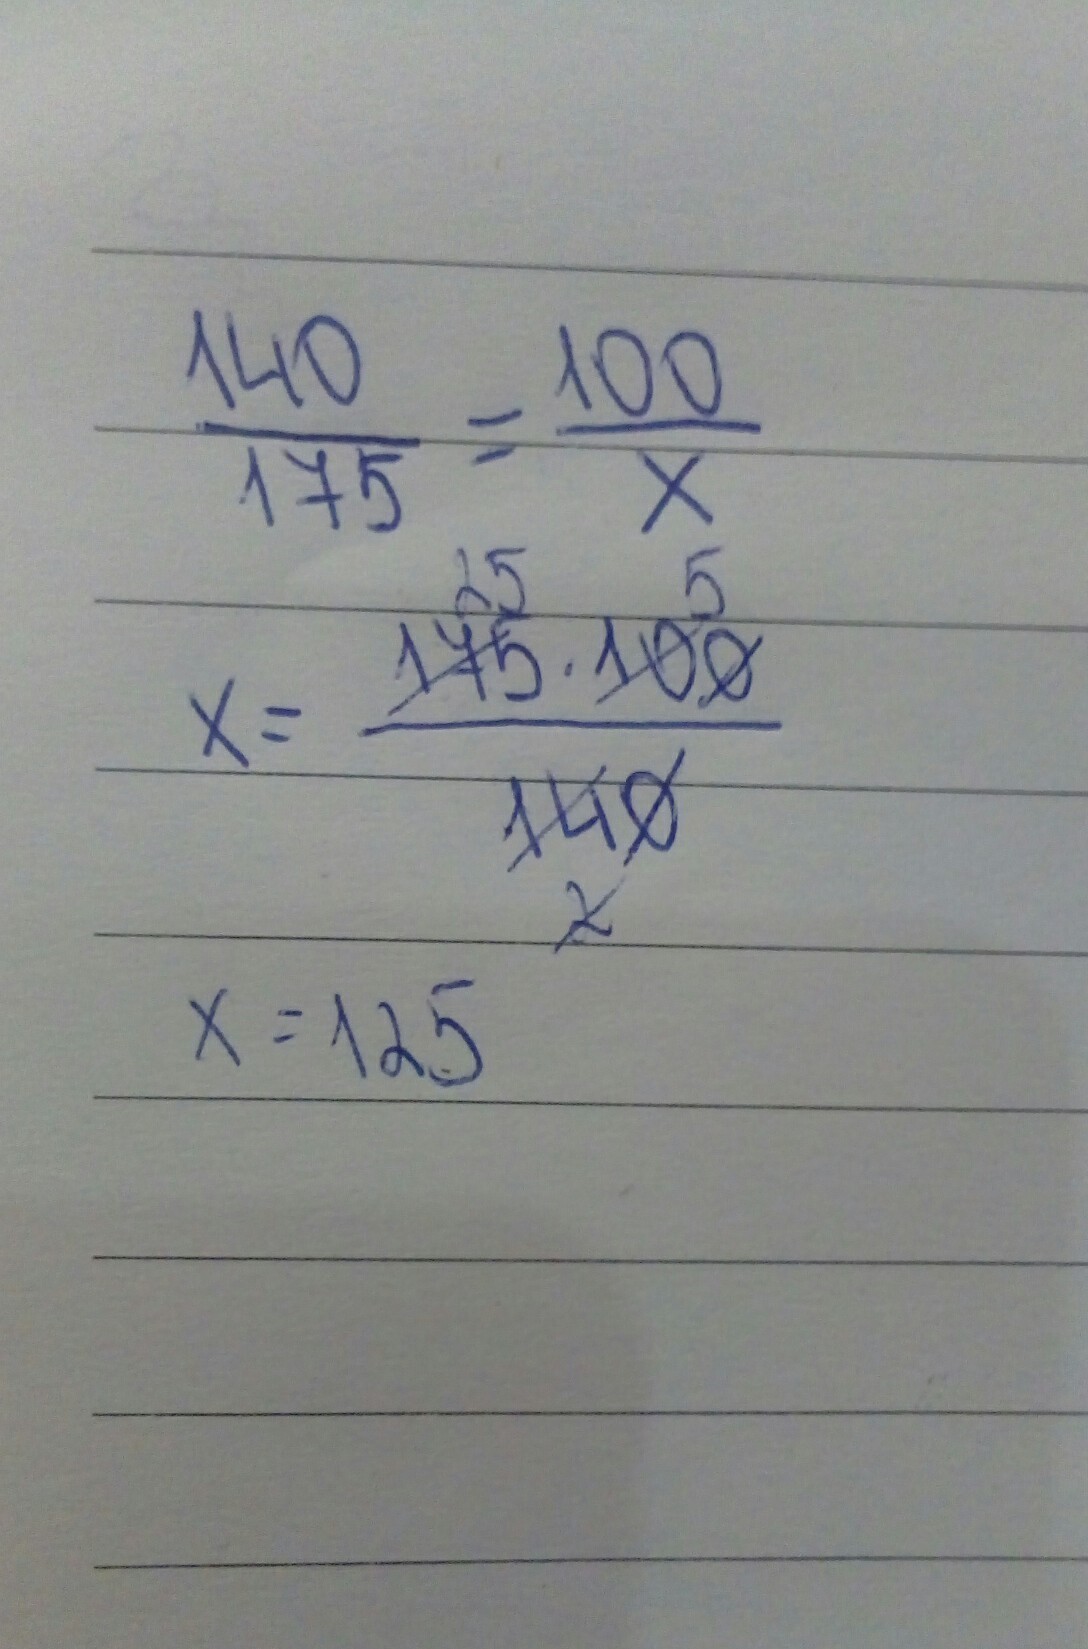 140 = 100
175 x
25 5
x = 175 · 100
140
2
x = 125